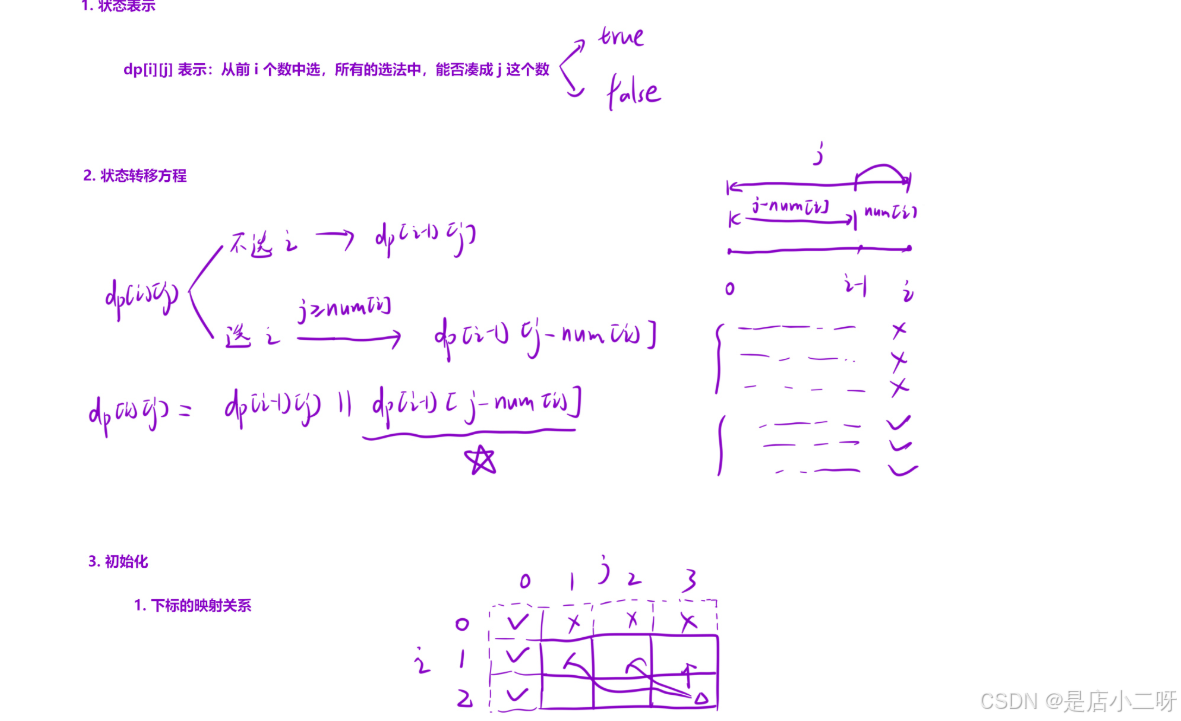 1. 状态表示
true
dp[i][j] 表示：从前 i 个数中选，所有的选法中，能否凑成 j 这个数
false
2. 状态转移方程
不选 i → dp[i-1][j]
dp[i][j]
选 i j≥num[i] → dp[i-1][j-num[i]]
dp[i][j] = dp[i-1][j] || dp[i-1][j-num[i]]
j
j-num[i] num[i]
0 i-1 i
3. 初始化
1. 下标的映射关系
j
0 1 2 3
0 ✓ × × ×
i 1 ✓
2 ✓
CSDN @是店小二呀